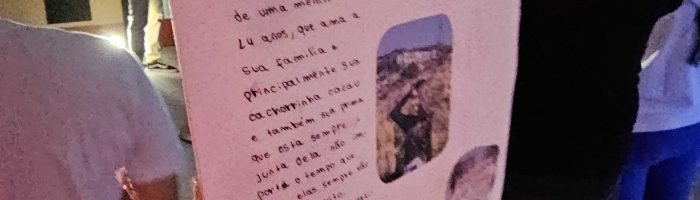 de uma
14 anos, que ama a
sua família e
principalmente sua
cachorrinha cacau
e também sua prima
que esta sempre
junta dela não im-
porta o tempo que
elas sempre vão